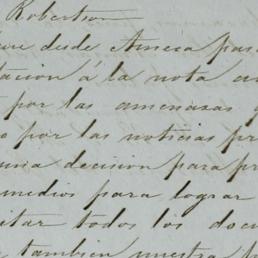 Robertson
desde Ameca para
á la nota
por las amenazas
por las noticias
una decision para
medios para lograr
todos los
tambien nuestra